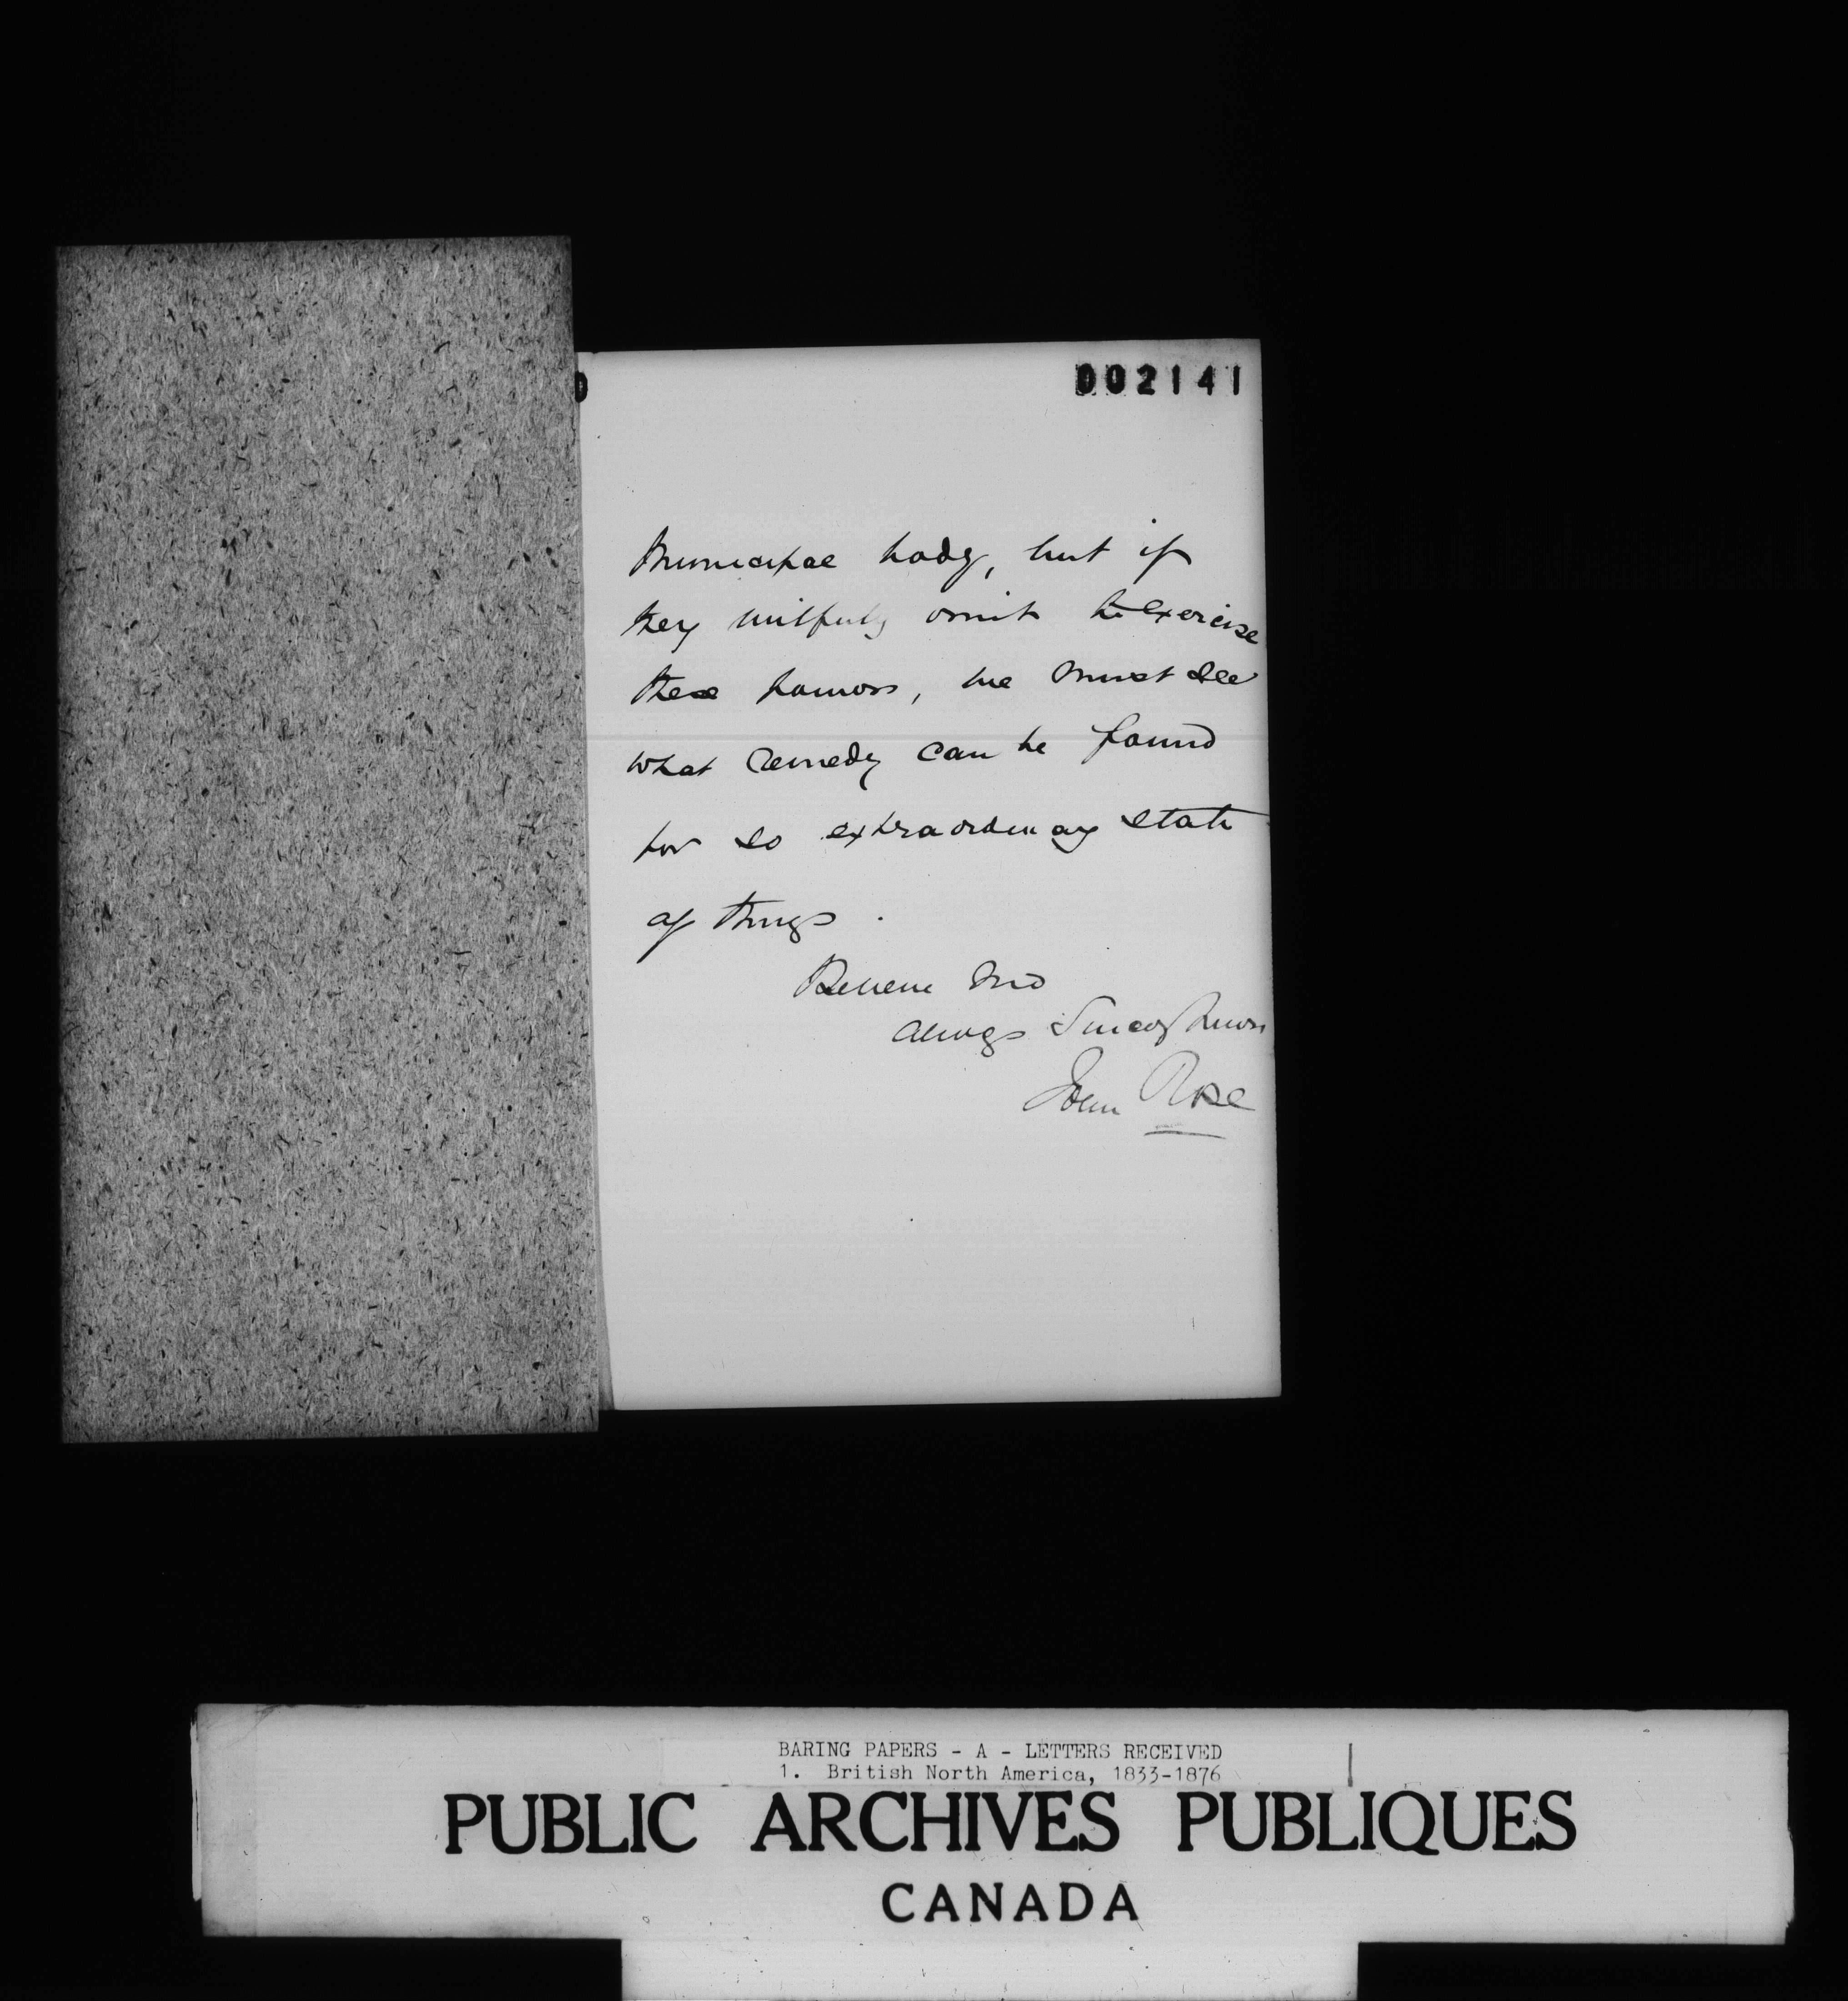 002141
Municipal body, but if
they wilfully omit to exercise
these powers, we must see
what remedy can be found
for so extraordinary state
of things.
Believe me
always Sincerely Yours
John Rose
BARING PAPERS - A - LETTERS RECEIVED
1. British North America, 1833-1876
PUBLIC ARCHIVES PUBLIQUES
CANADA